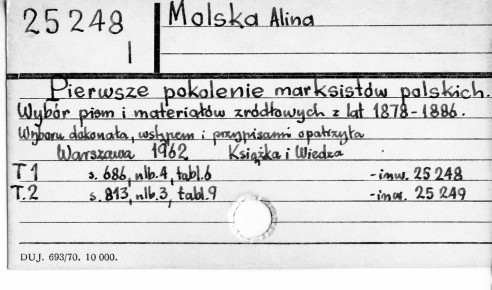 25248
I
Molska Alina
Pierwsze pokolenie marksistów polskich.
Wybór pism i materiałów źródłowych z lat 1878-1886.
Wyboru dokonała, wstępem i przypisami opatrzyła
Warszawa 1962 Książka i Wiedza
T 1 s. 686, nlb. 4, tabl. 6 -inw. 25 248
T. 2 s. 813, nlb. 3, tabl. 9 -inw. 25 249
DUJ. 693/70. 10 000.